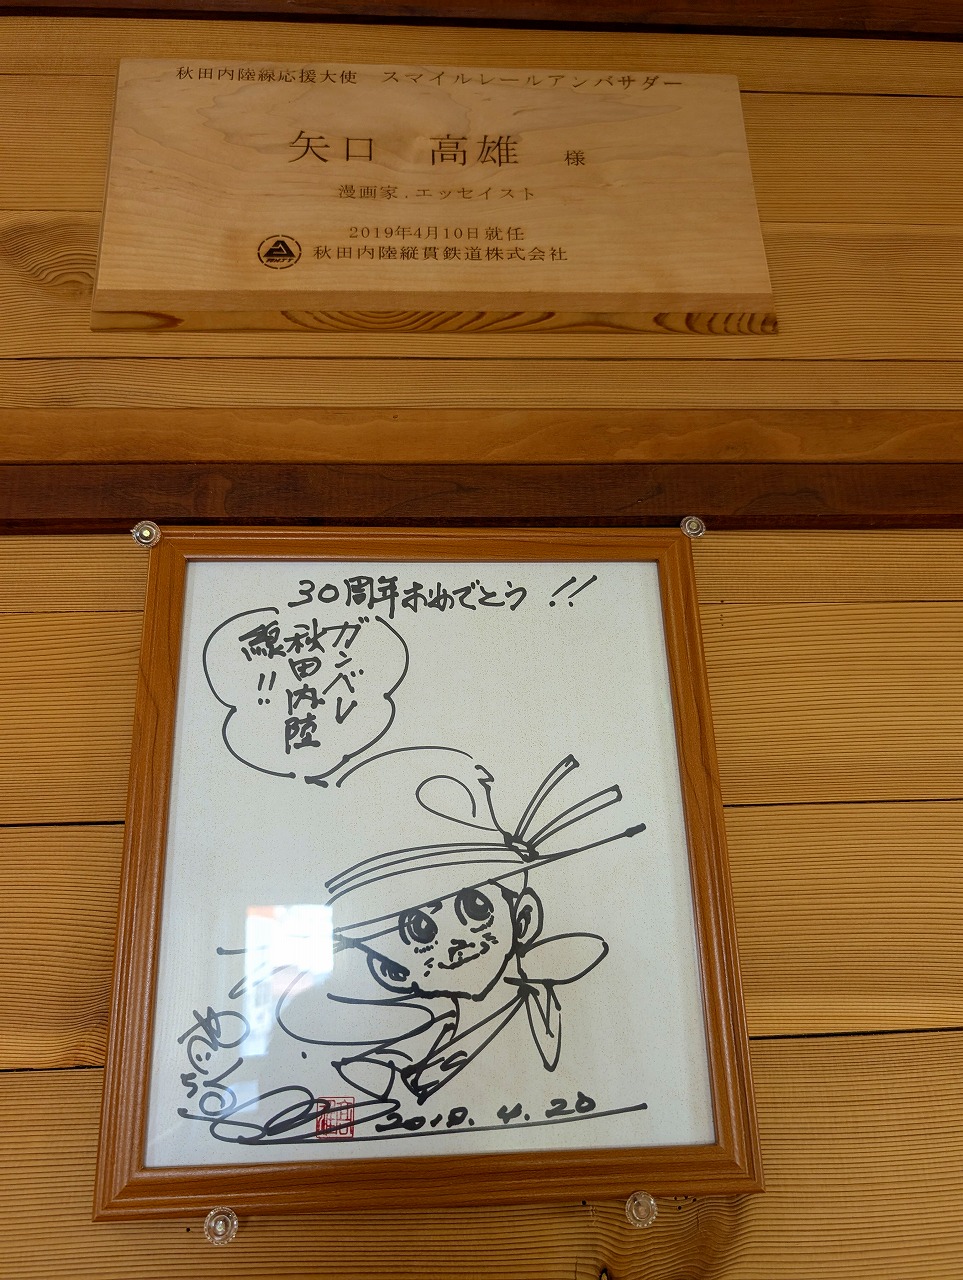 秋田内陸線応援大使　スマイルレールアンバサダー
矢口　高雄　様
漫画家.エッセイスト
2019年4月10日就任
秋田内陸縦貫鉄道株式会社
30周年おめでとう!!
ガンバレ
秋田内陸
線!!
4.20